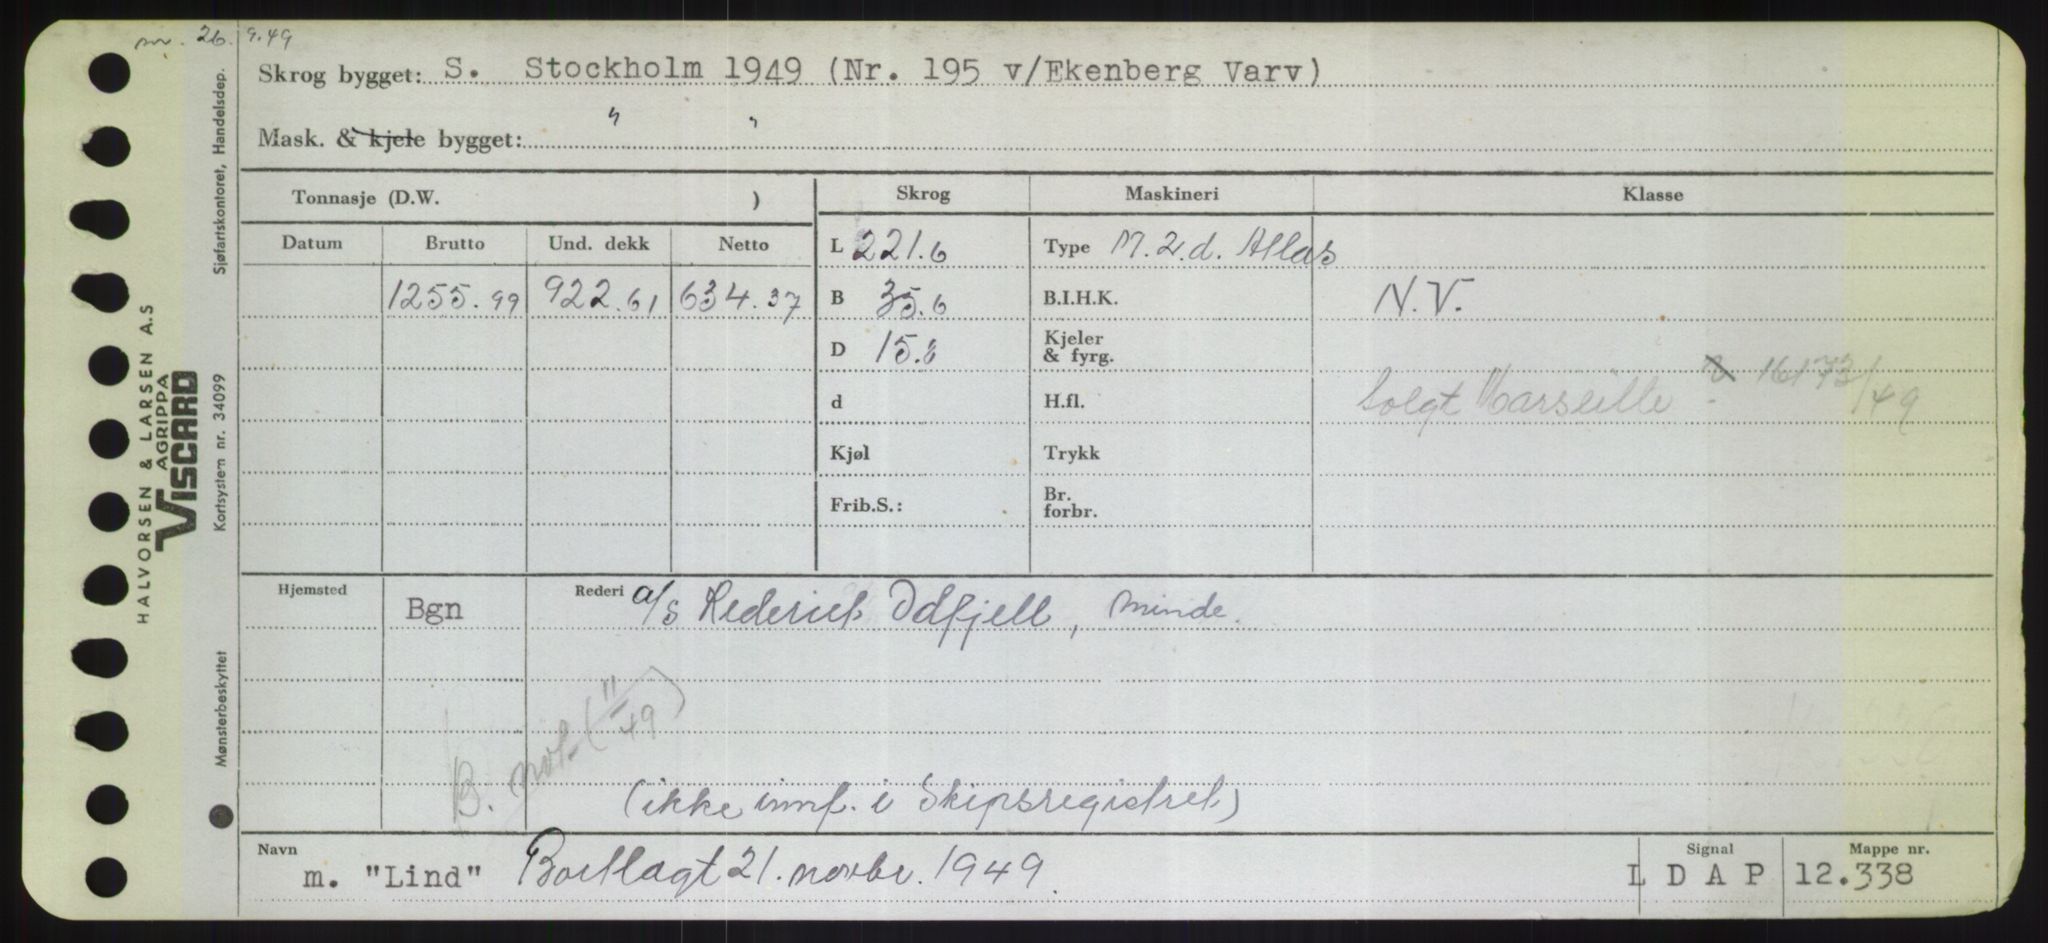 nv. 26. 9.49
Skrog bygget: S. Stockholm 1949 (Nr. 195 v/Ekenberg Varv)
Mask. & kjele bygget: " "
Tonnasje (D.W. ) Skrog Maskineri Klasse
Datum Brutto Und. dekk Netto L 221.6 Type M. 2. d. Atlas
1255.99 922.61 634.37 B 35.6 B.I.H.K. N.V.
D 15.8 Kjeler & fyrg.
d H.fl. Solgt Marseille 16173/49
Kjøl Trykk
Frib.S.: Br. forbr.
Hjemsted Bgn Rederi a/s Rederiet Odfjell, Minde.
B. not. (11/49)
(ikke innf. i Skipsregistret)
Navn m. "Lind" Bortlagt 21. novbr. 1949. Signal L D A P Mappe nr. 12.338
HALVORSEN & LARSEN A.S
AGRIPPA
VISCARD
Sjøfartskontoret, Handelsdep.
Kortsystem nr. 34099
Mønsterbeskyttet